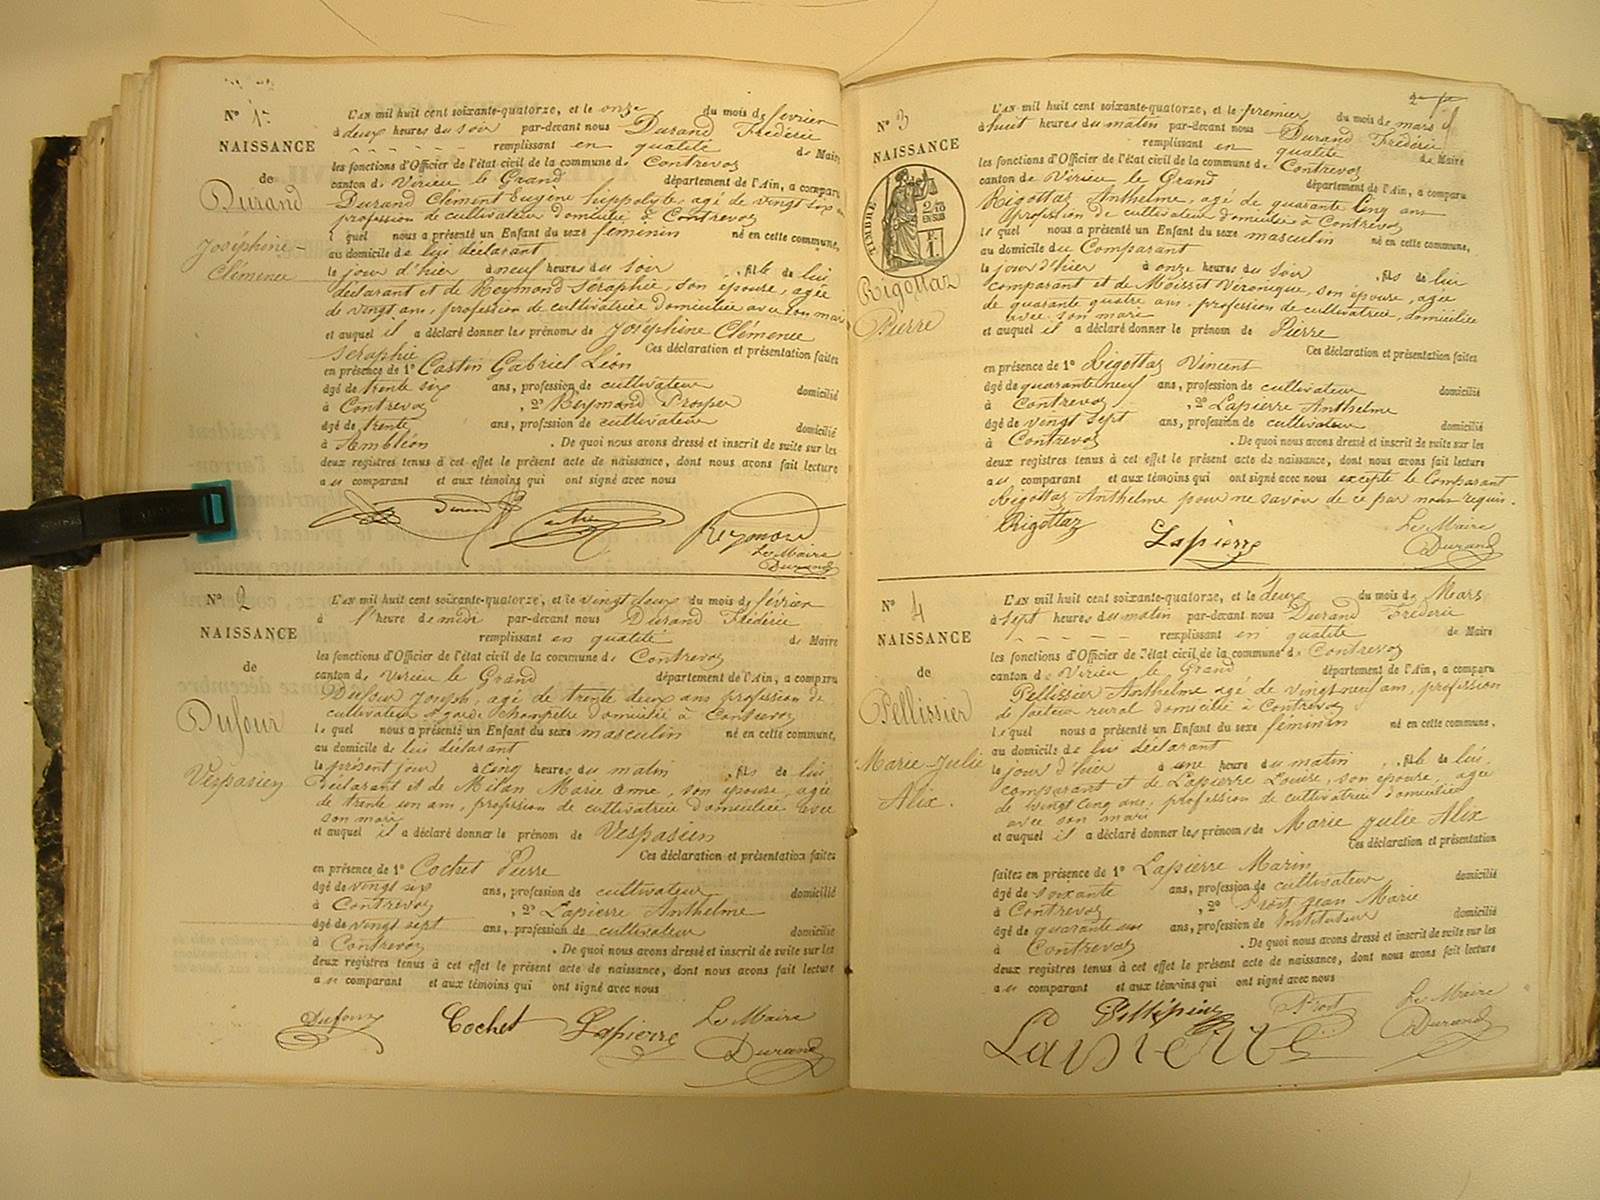 N° 1er
NAISSANCE
de
Durand
Joséphine-
Clémence
L'AN mil huit cent soixante-quatorze, et le onze du mois de février
à deux heures du soir par-devant nous Durand Frédéric
remplissant en qualité de Maire
les fonctions d'Officier de l'état civil de la commune de Contrevoz
canton de Virieu le Grand département de l'Ain, a comparu
Durand Clément Eugène hippolyte, agé de vingt six ans
profession de cultivateur domicilié à Contrevoz
lequel nous a présenté un Enfant du sexe féminin né en cette commune,
au domicile de lui déclarant
le jour d'hier à neuf heures du soir, fille de lui
déclarant et de Reymond Séraphie, son épouse, agée
de vingt ans, profession de cultivatrice domiciliée avec son mari
et auquel il a déclaré donner les prénoms de Joséphine Clémence
Séraphie Ces déclaration et présentation faites
en présence de 1° Castin Gabriel Léon
âgé de trente six ans, profession de cultivateur domicilié
à Contrevoz, 2° Reymond Prosper
âgé de trente ans, profession de cultivateur domicilié
à Ambléon. De quoi nous avons dressé et inscrit de suite sur les
deux registres tenus à cet effet le présent acte de naissance, dont nous avons fait lecture
au comparant et aux témoins qui ont signé avec nous
Durand Castin Reymond
Le Maire
Durand
N° 2
NAISSANCE
de
Dufour
Vespasien
L'AN mil huit cent soixante-quatorze, et le vingt deux du mois de février
à l'heure de midi par-devant nous Durand Frédéric
remplissant en qualité de Maire
les fonctions d'Officier de l'état civil de la commune de Contrevoz
canton de Virieu le Grand département de l'Ain, a comparu
Dufour Joseph, agé de trente deux ans profession de
cultivateur et garde champêtre domicilié à Contrevoz
lequel nous a présenté un Enfant du sexe masculin né en cette commune,
au domicile de lui déclarant
le présent jour à cinq heures du matin, fils de lui,
déclarant et de Milan Marie Anne, son épouse, agée
de trente un ans, profession de cultivatrice domiciliée avec
son mari
et auquel il a déclaré donner le prénom de Vespasien
Ces déclaration et présentation faites
en présence de 1° Cochet Pierre
âgé de vingt six ans, profession de cultivateur domicilié
à Contrevoz, 2° Lapierre Anthelme
âgé de vingt sept ans, profession de cultivateur domicilié
à Contrevoz. De quoi nous avons dressé et inscrit de suite sur les
deux registres tenus à cet effet le présent acte de naissance, dont nous avons fait lecture
au comparant et aux témoins qui ont signé avec nous
Dufour Cochet Lapierre Le Maire
Durand
N° 3
NAISSANCE
TIMBRE
2/10
EN SUS
Rigottaz
Pierre
L'AN mil huit cent soixante-quatorze, et le premier du mois de mars
à huit heures du matin par-devant nous Durand Frédéric
remplissant en qualité de Maire
les fonctions d'Officier de l'état civil de la commune de Contrevoz
canton de Virieu le Grand département de l'Ain, a comparu
Rigottaz Anthelme, agé de quarante cinq ans
profession de cultivateur domicilié à Contrevoz
lequel nous a présenté un Enfant du sexe masculin né en cette commune,
au domicile du Comparant
le jour d'hier à onze heures du soir, fils de lui
comparant et de Moisset Véronique, son épouse, agée
de quarante quatre ans, profession de cultivatrice, domiciliée
avec son mari
et auquel il a déclaré donner le prénom de Pierre
Ces déclaration et présentation faites
en présence de 1° Rigottaz Vincent
âgé de quarante neuf ans, profession de cultivateur domicilié
à Contrevoz, 2° Lapierre Anthelme
âgé de vingt sept ans, profession de cultivateur domicilié
à Contrevoz. De quoi nous avons dressé et inscrit de suite sur les
deux registres tenus à cet effet le présent acte de naissance, dont nous avons fait lecture
au comparant et aux témoins qui ont signé avec nous excepté le Comparant
Rigottaz Anthelme pour ne savoir de ce par nous requis.
Rigottaz Lapierre Le Maire
Durand
N° 4
NAISSANCE
de
Pellissier
Marie-Julie
Alix.
L'AN mil huit cent soixante-quatorze, et le deux du mois de Mars
à sept heures du matin par-devant nous Durand Frédéric
remplissant en qualité de Maire
les fonctions d'Officier de l'état civil de la commune de Contrevoz
canton de Virieu le Grand département de l'Ain, a comparu
Pellissier Anthelme agé de vingt neuf ans, profession
de facteur rural domicilié à Contrevoz
lequel nous a présenté un Enfant du sexe féminin né en cette commune,
au domicile de lui déclarant
le jour d'hier à une heure du matin, fille de lui,
comparant et de Lapierre Louise, son épouse, agée
de vingt cinq ans, profession de cultivatrice domiciliée
avec son mari
et auquel il a déclaré donner les prénoms de Marie Julie Alix
Ces déclaration et présentation
faites en présence de 1° Lapierre Marin
âgé de soixante ans, profession de cultivateur domicilié
à Contrevoz, 2° Prost Jean Marie
âgé de quarante ans, profession de Instituteur domicilié
à Contrevoz. De quoi nous avons dressé et inscrit de suite sur les
deux registres tenus à cet effet le présent acte de naissance, dont nous avons fait lecture
au comparant et aux témoins qui ont signé avec nous
Pellissier Prost Le Maire
Lapierre Durand